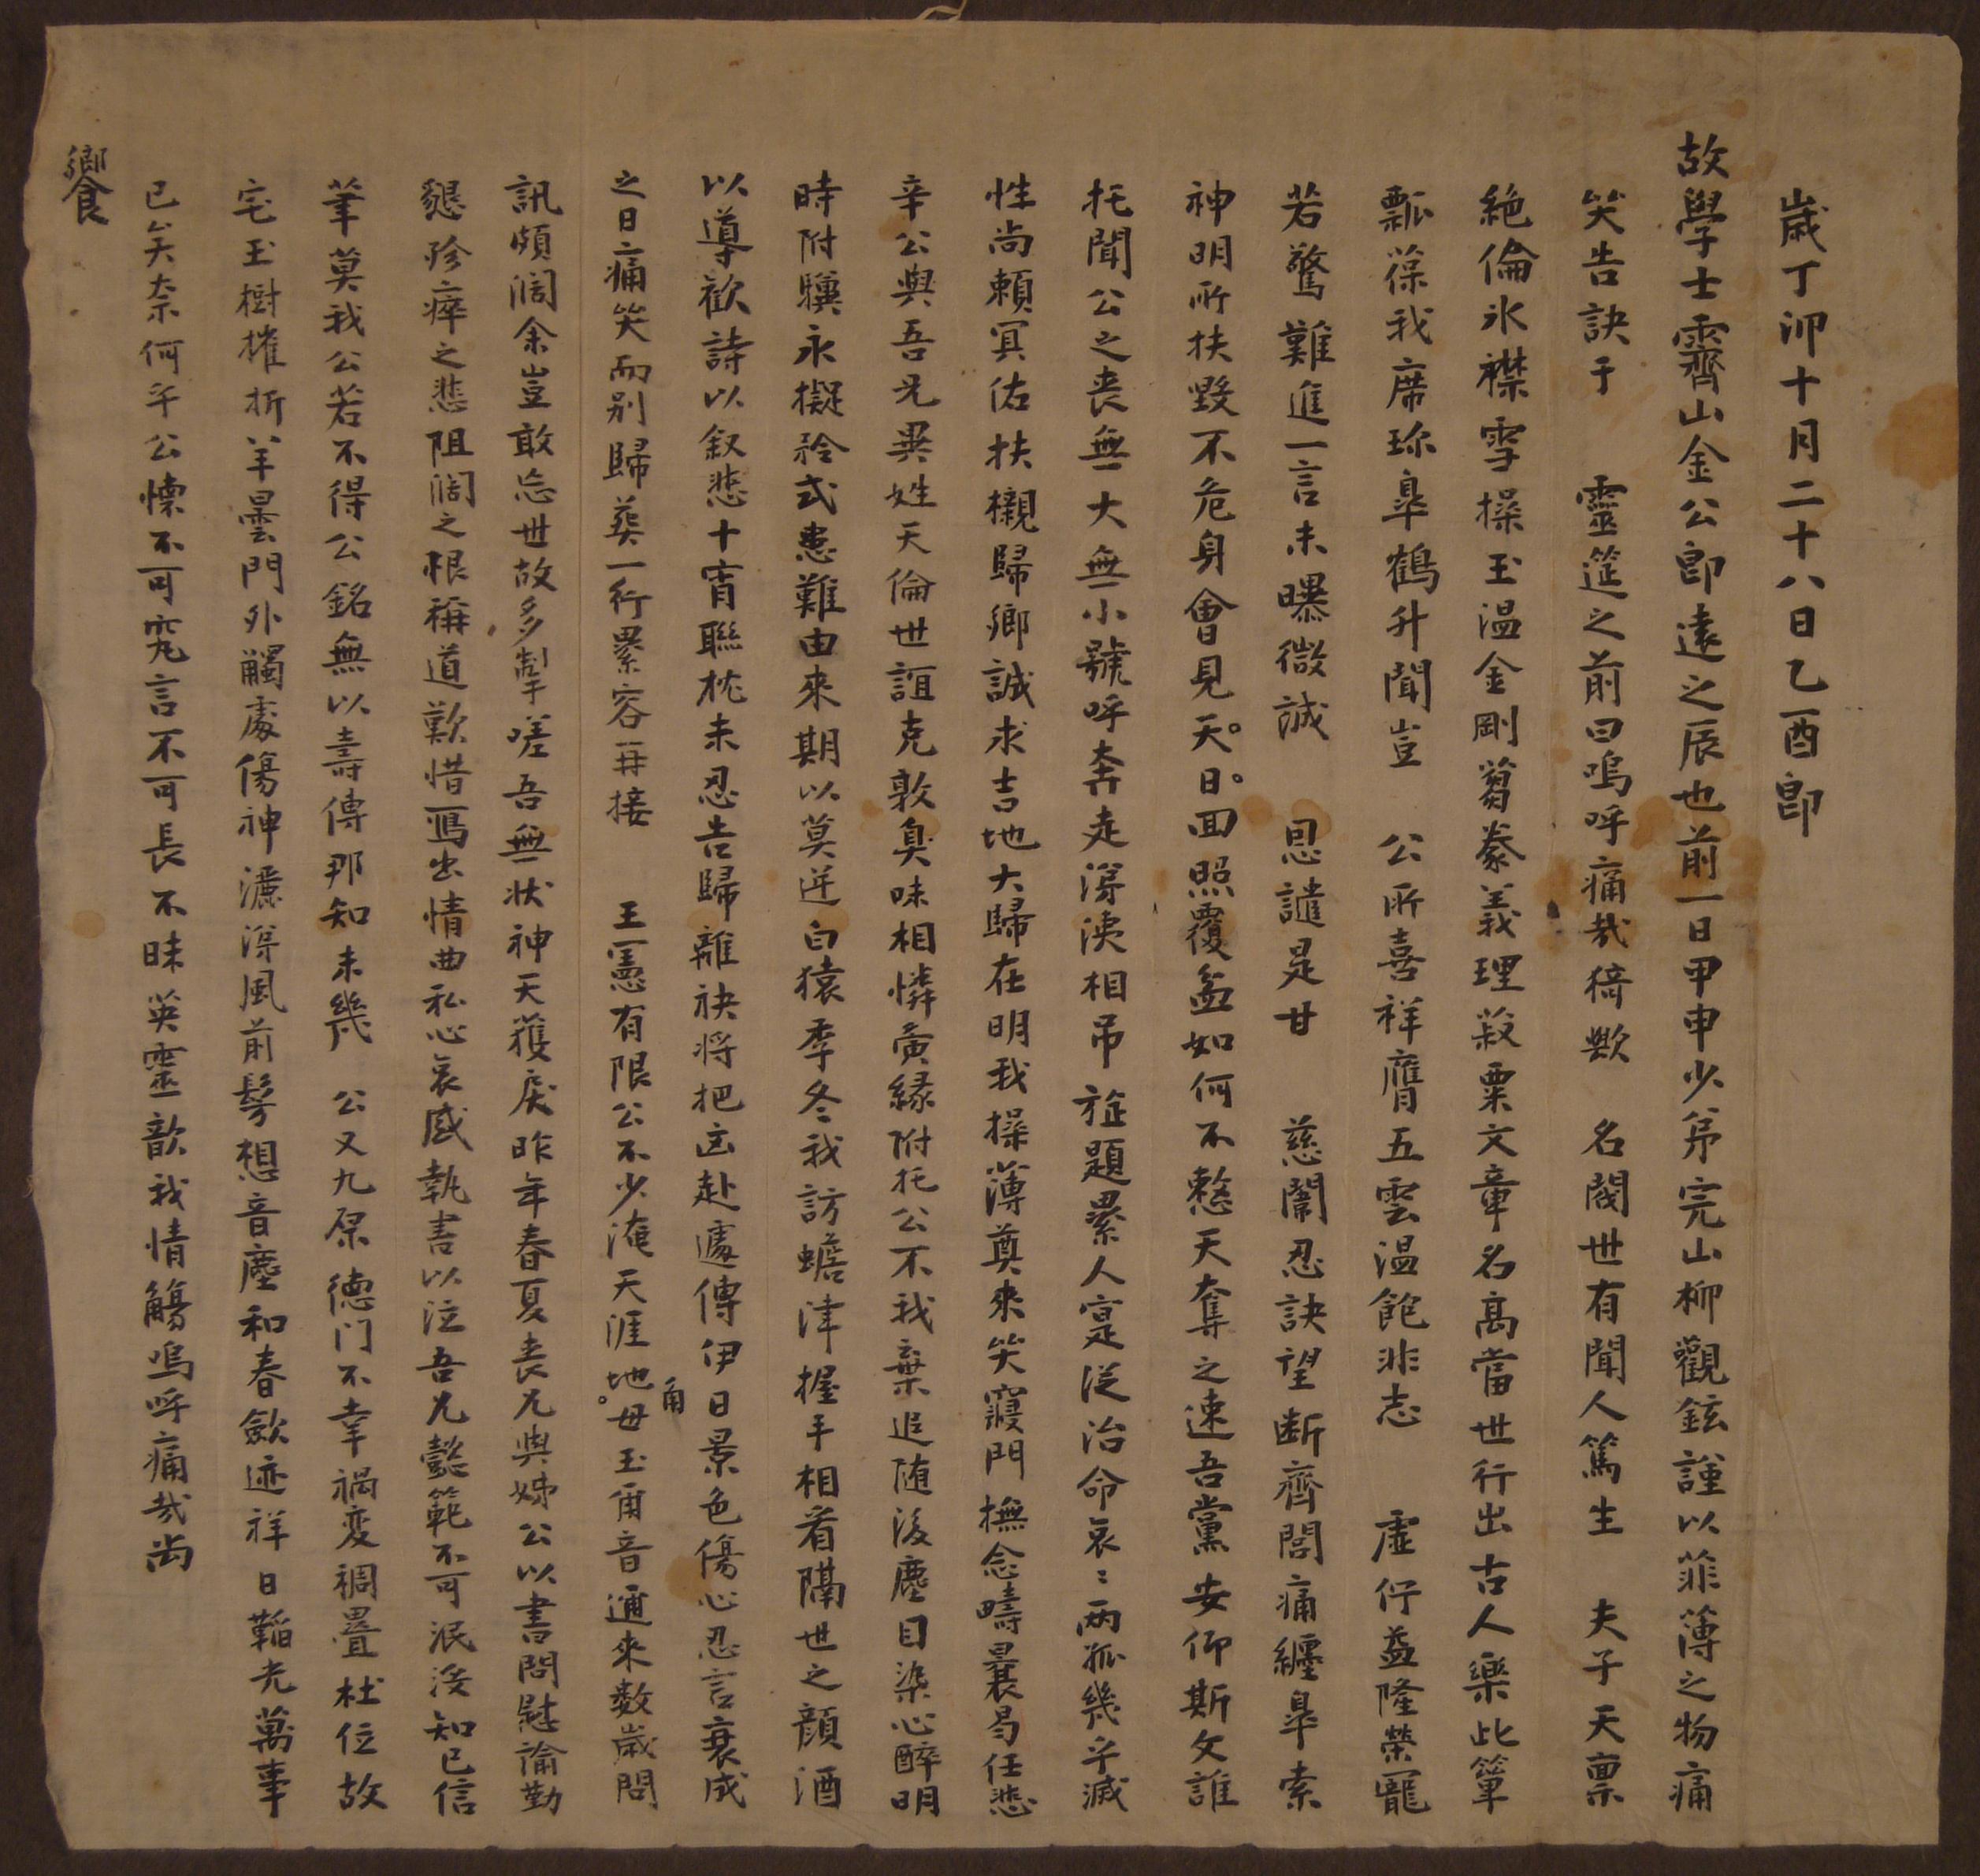 歲丁卯十月二十八日乙酉卽
故學士霽山金公卽遠之辰也前一日甲申少弟完山柳觀鉉謹以菲薄之物痛
哭告訣于 靈筵之前曰嗚呼痛哉猗歟 名閥世有聞人篤生 夫子天稟
絶倫氷襟雪操玉温金剛蒭豢義理菽粟文章名高當世行出古人樂此簞
瓢葆我席珍臯鶴升聞豈 公所喜祥膺五雲温飽非志 虛佇益隆榮寵
若驚難進一言未曝微誠 恩譴是甘 慈闈忍訣望断齊閭痛纏臯索
神明所扶毀不危身會見天日回照覆盆如何不憖天奪之速吾黨安仰斯文誰
托聞公之丧無大無小號呼奔走淂涕相吊旌題累人寔從治命哀哀两孤幾乎滅
性尚賴冥佑扶櫬歸鄉誠求吉地大歸在明我操薄奠來哭寢門撫念疇曩曷任悲
辛公與吾兄異姓天倫世誼克敦臭味相憐夤緣附托公不我棄追随後塵目染心醉明
時附驥永擬矜式患難由來期以莫逆白猿季冬我訪蟾津握手相看隔世之顔酒
以導歡詩以叙悲十宵聯枕未忍告歸離袂将把凶赴遽傳伊日景色傷心忍言襄成
之日痛哭而别歸葬一行累容再接 王憲有限公不少淹天涯地角毋玉爾音邇來数歲問
訊頗闊余豈敢忘世故多掣嗟吾無状神天獲戾昨年春夏丧兄與姊公以書問慰諭勤
懇殄瘁之悲阻闊之恨稱道歎惜寫出情曲私心哀感執書以泣吾兄懿範不可泯沒知已信
筆莫我公若不得公銘無以壽傳那知未幾 公又九原德门不幸禍变稠疊杜位故
宅玉樹摧折羊曇門外觸處傷神灑淂風前髣想音塵和春斂迹祥日韜光萬事
已矣奈何乎公懷不可究言不可長不昧英靈歆我情觴嗚呼痛哉尚
饗